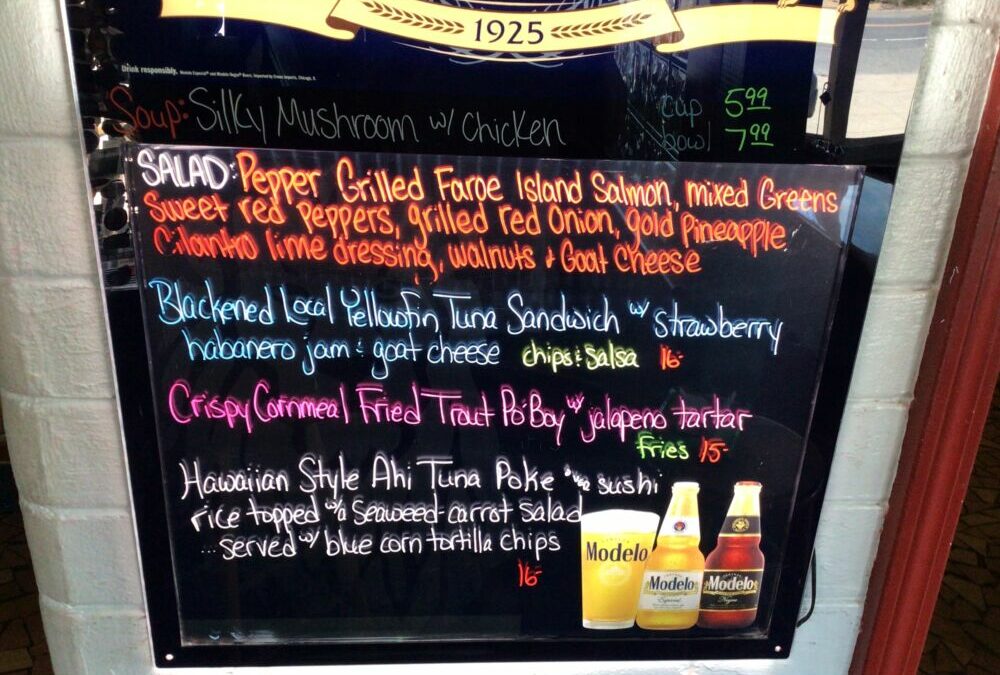 1925
Drink responsibly.
Soup: Silky Mushroom w/ Chicken cup 5.99
bowl 7.99
SALAD: Pepper Grilled Faroe Island Salmon, mixed Greens
Sweet red peppers, grilled red onion, gold Pineapple
Cilantro lime dressing, walnuts + Goat Cheese
Blackened Local Yellowfin Tuna Sandwich w/ strawberry
habanero jam & goat cheese chips & salsa 16-
Crispy Cornmeal Fried Trout Po'Boy w/ jalapeno tartar
fries 15-
Hawaiian Style Ahi Tuna Poke sushi
rice topped w/a Seaweed-carrot Salad
...served w/ blue corn tortilla chips
16-
Modelo
Modelo
Especial
Modelo
Negra